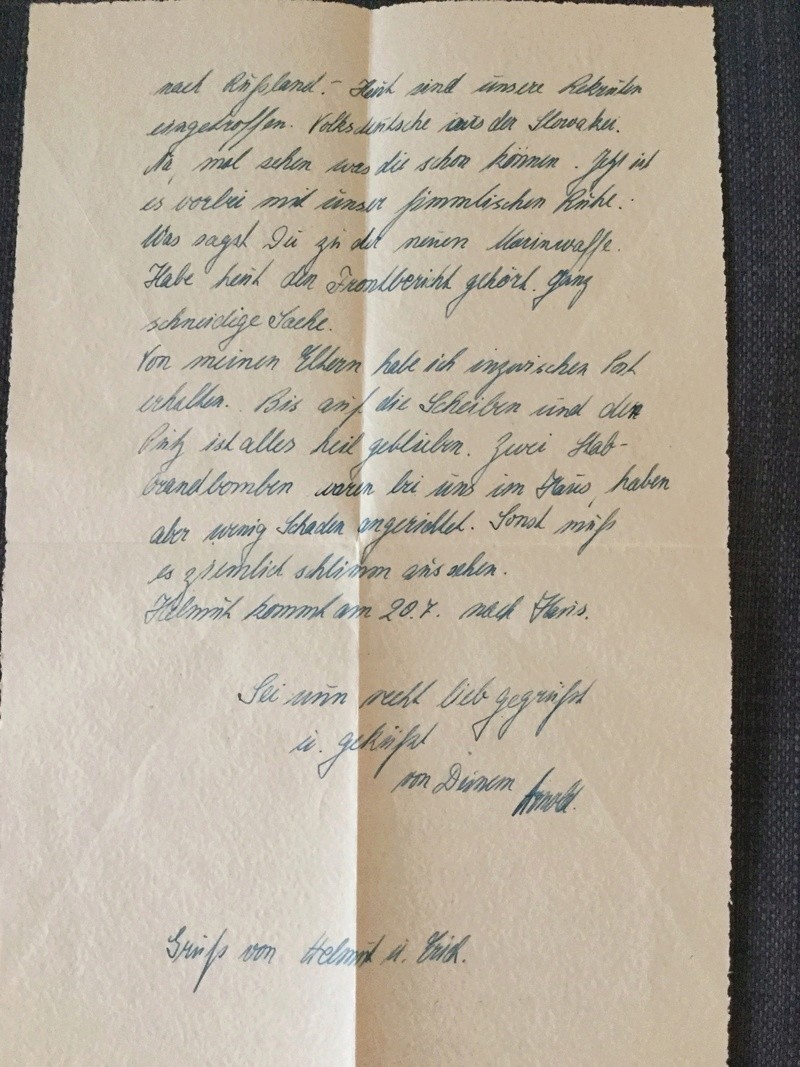 nach Rußland. – Heut sind unsere Rekruten
eingetroffen. Volksdeutsche aus der Slowakei.
Na, mal sehen was die schon können. Jetzt ist
es vorbei mit unser himmlischen Ruhe.
Was sagst Du zu der neuen Marinwaffe.
Habe heut den Frontbericht gehört. Ganz
schneidige Sache.
Von meinen Eltern habe ich inzwischen Post
erhalten. Bis auf die Scheiben und den
Putz ist alles heil geblieben. Zwei Stab-
brandbomben waren bei uns im Haus, haben
aber wenig Schaden angerichtet. Sonst muß
es ziemlich schlimm aussehen.
Helmut kommt am 20.7. nach Haus.
Sei nun recht lieb gegrüßt
u. geküßt
von Deinem Arnold.
Gruß von Helmut u. Erich.